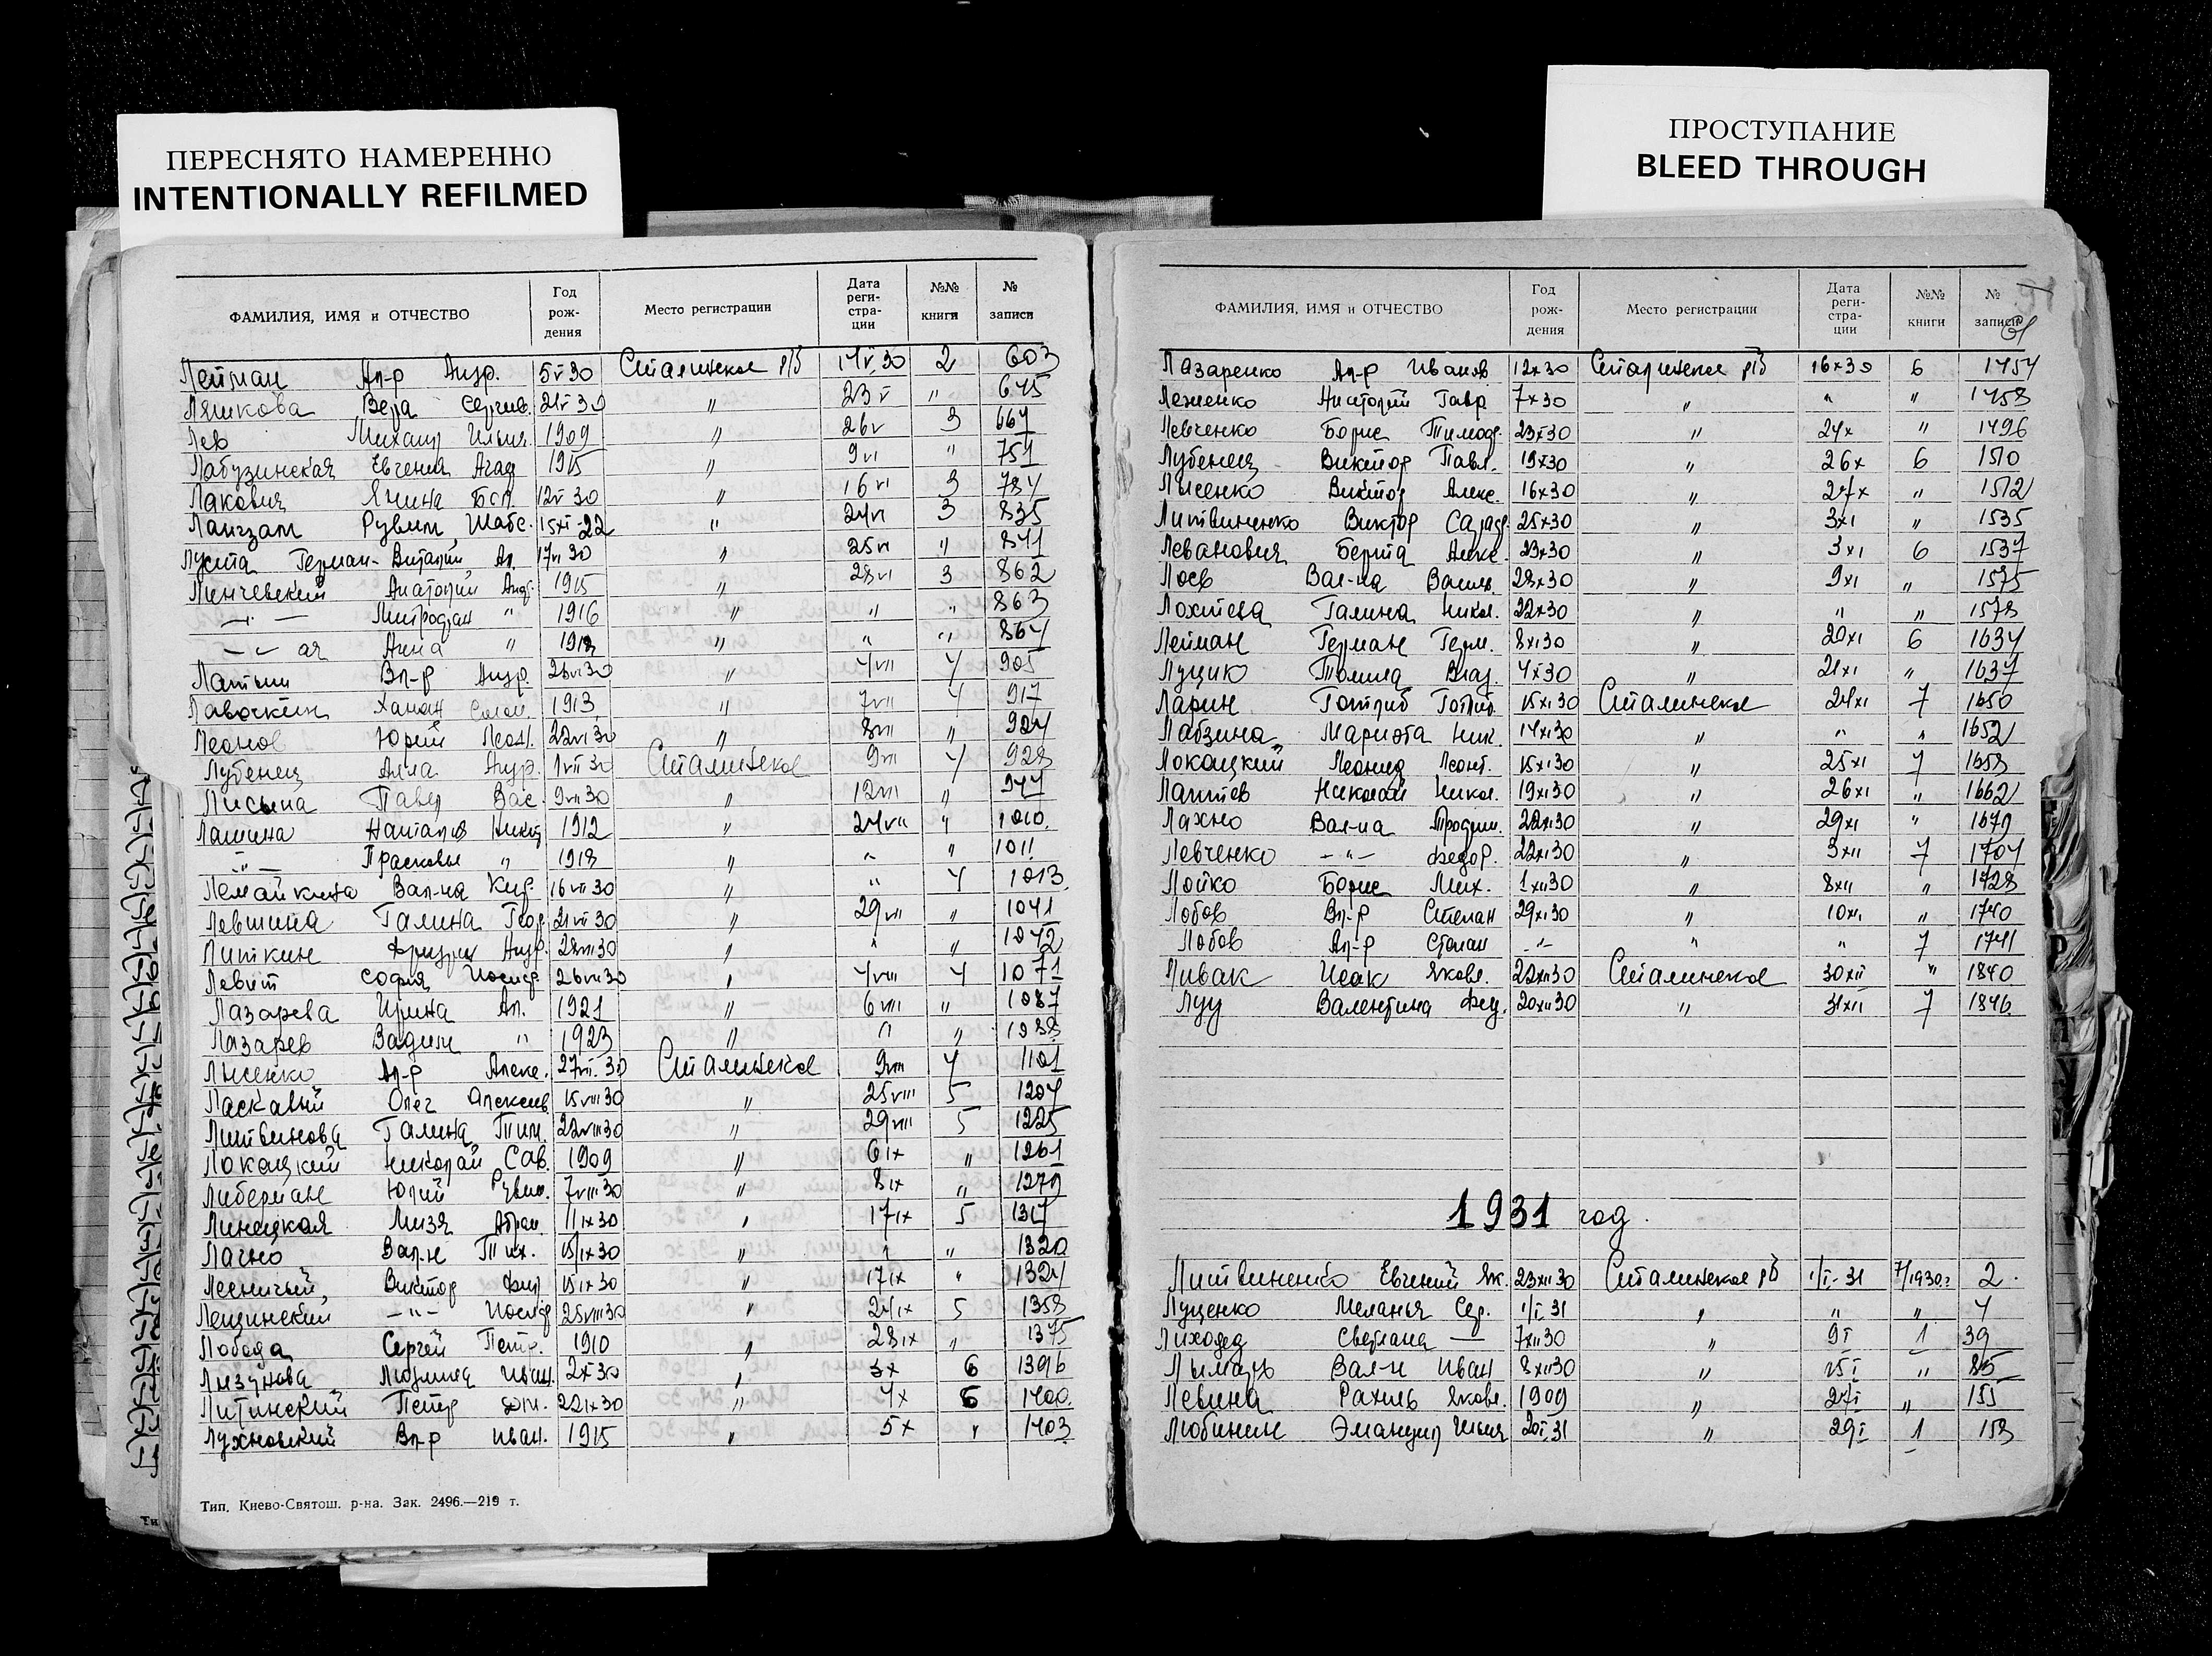 ПЕРЕСНЯТО НАМЕРЕННО
INTENTIONALLY REFILMED
ПРОСТУПАНИЕ
BLEED THROUGH
ФАМИЛИЯ, ИМЯ и ОТЧЕСТВО Год рож-дения Место регистрации Дата реги-стра-ции №№ книги № записи
Лейман Ал-р Андр. 5 V 30 Сталинское р/б 14 V 30 2 603
Ляшкова Вера Сергеев. 21 V 30 " 23 V " 645
Лев Михаил Ильич 1909 " 26 V 3 667
Лабузинская Евгения 1915 " 9 VI " 751
Лакович Янина 12 V 30 " 16 VI 3 784
Рувим 15 XI-22 " 24 VI 3 835
Герман-Виталий Ал. 17 VI 30 25 VI " 841
Линчевский Анатолий Андр. 1915 " 28 VI 3 862
— " — Митрофан " 1916 " " " 863
— " — ая Анна " " " " 864
Вл-р Андр. 26 VI 30 " 4 VII 4 905
Лавочкин Ханан Солом. 1913 " 7 VII 4 917
Леонов Юрий Леон. 22 VI 30 " 8 VII " 924
Лубенец Алла Андр. 1 VII 30 Сталинское 9 VII 4 928
Лисына Павел Вас. 9 VII 30 " 12 VII " 947
Лашина Наталия 1912 " 24 VII " 1010
— " — Прасковья " 1918 " " " 1011
Лемайкина Вал-на 16 VII 30 " " 4 1013
Левшина Галина Геор. 21 VII 30 " 29 VII " 1041
Литкин Андр. 28 VII 30 " " " 1042
Левит София Иосиф. 26 VII 30 " 4 VIII 4 1071
Лазарева Ирина Ал. 1921 " 6 VIII " 1087
Лазарев Вадим " 1923 " " " 1088
Лысенко Ал-р Алекс. 27 VII 30 Сталинское 9 VIII 4 1101
Ласкавый Олег Алексеев 15 VIII 30 " 25 VIII 5 1204
Литвинова Галина Тим. 22 VIII 30 " 29 VIII 5 1225
Локацкий Николай Сав. 1909 " 6 IX " 1261
Либерман Юлий Рувим. 7 VIII 30 " 8 IX " 1279
Линецкая Лизя Абрам. 11 IX 30 " 17 IX 5 1317
Лагно Вал-н Тих. 15 IX 30 " " " 1320
Лесничый Виктор Фил. 15 IX 30 " 17 IX " 1324
Лещинский — " — Иосиф 25 VIII 30 " 24 IX 5 1358
Лобода Сергей Петр. 1910 " 28 IX " 1375
Лизунова Людмила Иван. 2 X 30 " 3 X 6 1396
Литинский Петр 22 IX 30 " 4 X 6 1400
Лухновский Вл-р Иван. 1915 " 5 X " 1403
Тип. Киево-Святош. р-на. Зак. 2496.—219 т.
ФАМИЛИЯ, ИМЯ и ОТЧЕСТВО Год рож-дения Место регистрации Дата реги-стра-ции №№ книги № записи
Лазаренко Ал-р Иванов 12 X 30 Сталинское р/б 16 X 30 6 1454
Леженко Анатолий Гавр 7 X 30 " " " 1458
Левченко Борис Тимоф. 23 X 30 " 24 X " 1496
Лубенец Виктор Павл. 19 X 30 " 26 X 6 1510
Лысенко Виктор Алекс. 16 X 30 " 27 X " 1512
Литвиненко Виктор 25 X 30 " 3 XI " 1535
Леванович Берта Алекс. 23 X 30 " 3 XI 6 1537
Лоев Вал-на Василь. 28 X 30 " 9 XI " 1575
Галина Никол. 22 X 30 " " " 1578
Лейман Герман Герм. 8 XI 30 " 20 XI 6 1634
Луцик Полина Влад. 4 XI 30 " 21 XI " 1637
Ларин Готлиб Готлиб. 15 XI 30 Сталинское 24 XI 7 1650
Лабзина Мариэта Ник. 14 XI 30 " " " 1652
Локацкий Леонид Леонт. 15 XI 30 " 25 XI 7 1658
Лаптев Николай Никол. 19 XI 30 " 26 XI " 1662
Лахно Вал-на Трофим. 22 XI 30 " 29 XI " 1679
Левченко — " — Федор. 22 XI 30 " 3 XII 7 1704
Лойко Борис Мих. 1 XII 30 " 8 XII " 1728
Лобов Вл-р Степан 29 XI 30 " 10 XII " 1740
Лобов Ал-р Степан — " — " " 7 1741
Ливак Исак Яковл. 22 XII 30 Сталинское 30 XII " 1840
Луц Валентина Фед. 20 XII 30 " 31 XII 7 1846
1931 год.
Литвиненко Евгений Як. 23 XII 30 Сталинское р/б 1/I-31 7/1930 г 2.
Луценко Меланья Сер. 1/I 31 " " " 4
Лиходед Светлана — 7 XII 30 " 9 I 1 39
Лымарь Вал-н Иван 8 XII 30 " 15 I " 85
Левина Рахиль Яковл. 1909 " 27 I " 155
Любинин Эмануил Ильич 20 I 31 " 29 I 1 158